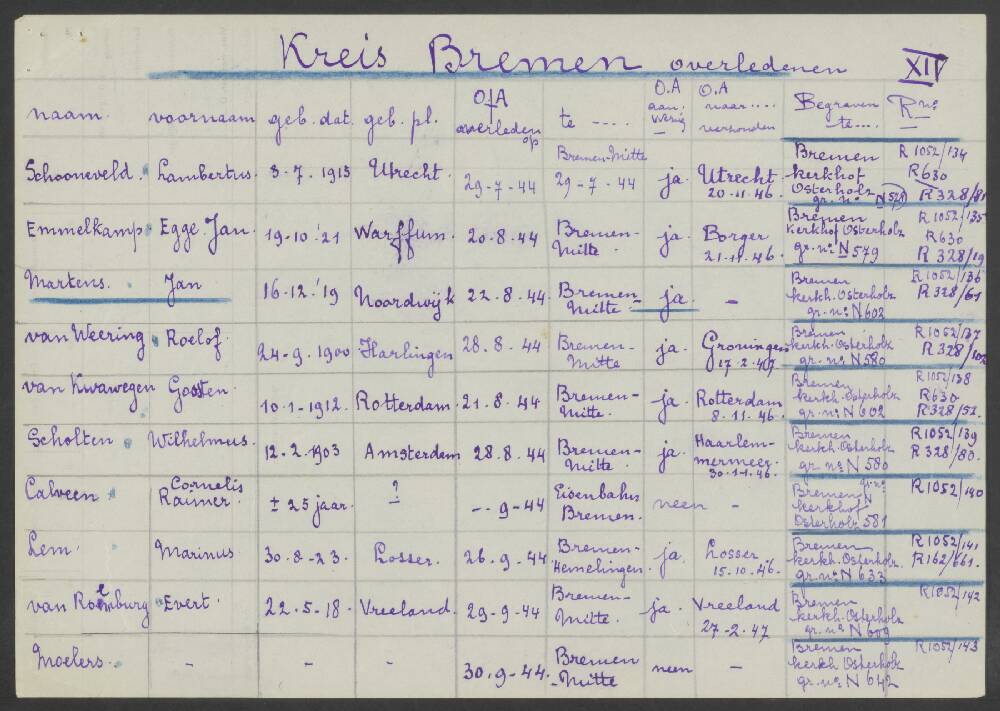 Kreis Bremen overledenen XIV
naam. voornaam geb. dat. geb. pl. O/A overleden op te .... O.A aan-wezig O.A naar .... verzonden Begraven te... R nº
Schooneveld. Lambertus. 3-7. 1915 Utrecht. 29-7-44 Bremen-Mitte 29-7-44 ja. Utrecht 20-11-46. Bremen kerkhof Osterholz gr. nº N 529 R 1052/134 R630 R 328/81
Emmelkamp Egge Jan. 19-10.'21 Warffum. 20.8.44 Bremen-Mitte. ja. Borger 21-11-46. Bremen Kerkhof Osterholz gr. nº N 579 R 1052/135 R630 R 328/19
Martens. Jan 16-12.'19 Noordwijk 22.8.44 Bremen-Mitte ja. - Bremen kerkh. Osterholz gr. nº N 602 R 1052/136 R 328/61
van Weering Roelof. 24-9.1900 Harlingen 28.8.44 Bremen-Mitte ja. Groningen 17-2-47 Bremen kerkh. Osterholz gr. nº N 580 R 1052/137 R 328/102
van Kwawegen Goosten. 10.1-1912. Rotterdam. 21.8.44 Bremen-Mitte. ja. Rotterdam 8.11.46. Bremen kerkh. Osterholz gr. nº N 602 R1052/138 R630 R328/52.
Scholten Wilhelmus. 12.2.1903 Amsterdam 28.8.44 Bremen-Mitte. ja. Haarlem-mermeer. 30-11-46. Bremen kerkh. Osterholz gr. nº N 580 R1052/139 R 328/80.
Calveen Cornelis Raimer. ± 25 jaar. ? -.9-44 Eisenbahn Bremen. neen - Bremen gr. nº N kerkhof Osterholz 581 R 1052/140
Lem. Marinus. 30.8-23. Losser. 26.9.44 Bremen-Hemelingen. ja. Losser 15-10.46. Bremen kerkh. Osterholz. gr. nº N 633 R1052/141 R162/661.
van Roemburg Evert. 22.5-18. Vreeland. 29-9-44 Bremen-Mitte. ja. Vreeland 27-2.47 Bremen kerkh. Osterholz gr. nº N 609 R1052/142
Moelers. - - - 30.9-44. Bremen-Mitte neen - Bremen kerkh Osterholz gr. nº N 642 R 1052/143